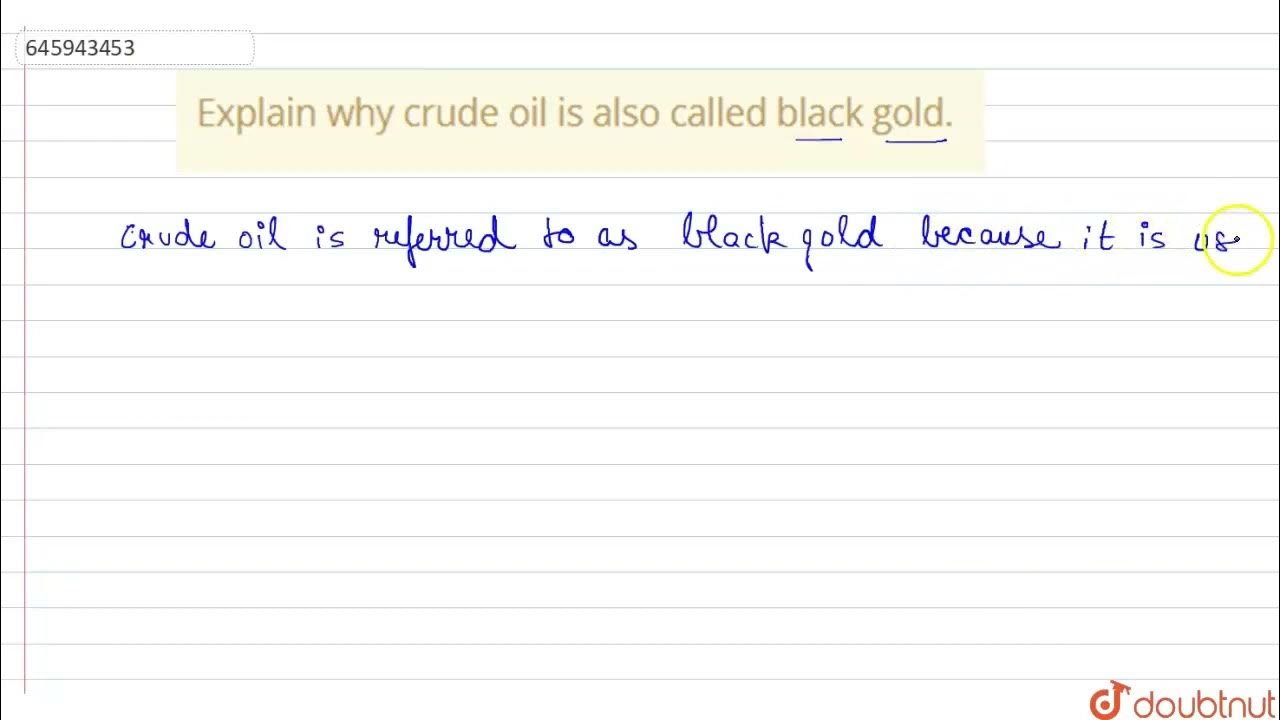 645943453
Explain why crude oil is also called black gold.
crude oil is referred to as black gold because it is us
doubtnut